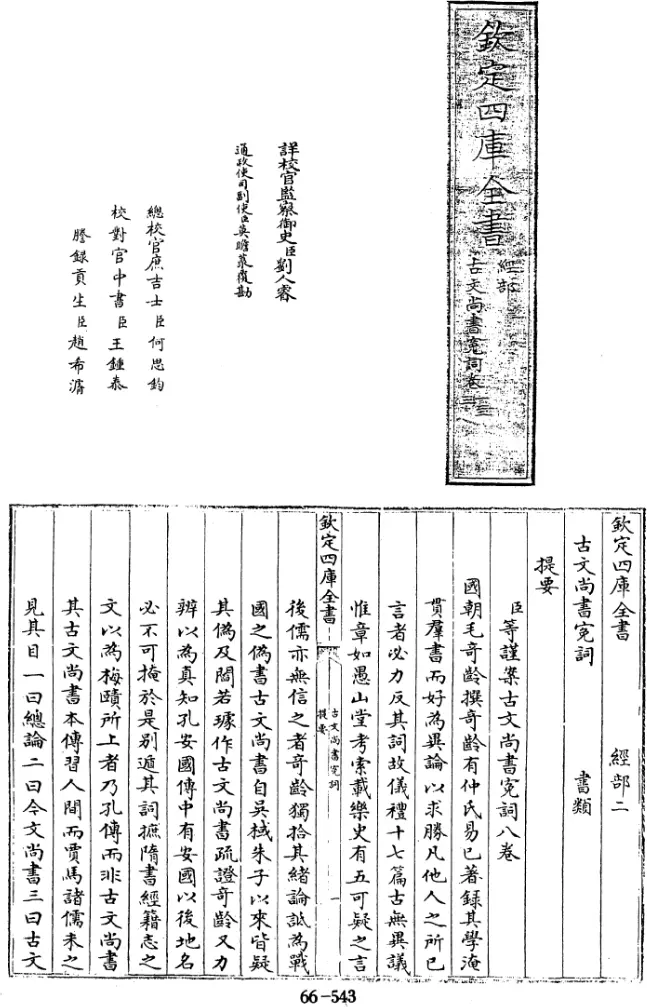 欽定四庫全書
經部
古文尚書寃詞卷
詳校官監察御史臣劉人睿
通政使司副使臣莫瞻菉覆勘
總校官庶吉士臣何思鈞
校對官中書臣王鍾泰
謄錄貢生臣趙希濂
欽定四庫全書 經部二
古文尚書寃詞 書類
提要
臣等謹案古文尚書寃詞八卷
國朝毛奇齡撰奇齡有仲氏易已著録其學淹
貫羣書而好為異論以求勝凡他人之所已
言者必力反其詞故儀禮十七篇古無異議
惟章如愚山堂考索載樂史有五可疑之言
欽定四庫全書
古文尚書寃詞
提要
一
後儒亦無信之者奇齡獨拾其緒論詆為戰
國之偽書古文尚書自吳棫朱子以來皆疑
其偽及閻若璩作古文尚書疏證奇齡又力
辨以為真知孔安國傳中有安國以後地名
必不可掩於是别遁其詞摭隋書經籍志之
文以為梅賾所上者乃孔傳而非古文尚書
其古文尚書本傳習人間而賈馬諸儒未之
見其目一曰總論二曰今文尚書三曰古文
66-543